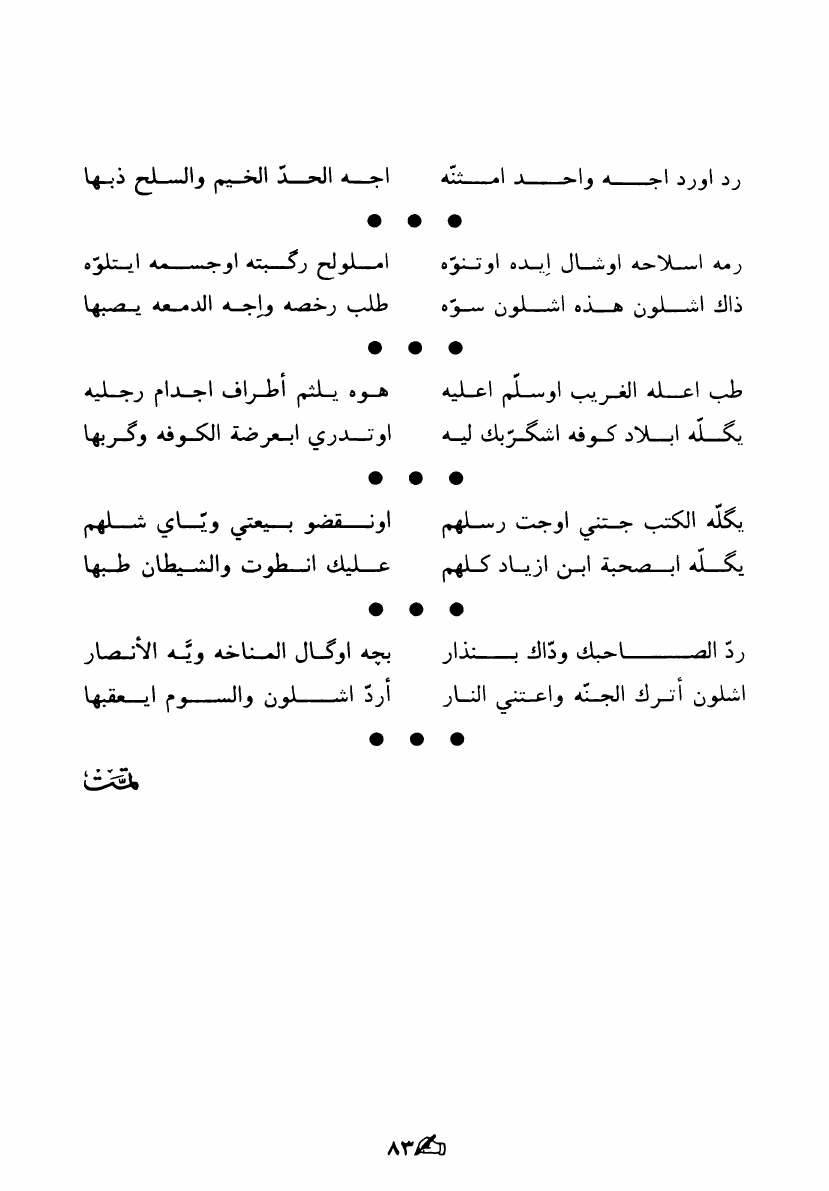 رد اورد اجه واحد امثنّه اجه الحدّ الخيم والسلح ذبها
● ● ●
رمه اسلاحه اوشال إيده اوتنوّه املولح رگبته اوجسمه ايتلوّه
ذاك اشلون هذه اشلون سوّه طلب رخصه وإجه الدمعه يصبها
● ● ●
طب اعله الغريب اوسلّم اعليه هوه يلثم أطراف اجدام رجليه
يگلّه ابلاد كوفه اشگرّبك ليه اوتدري ابعرضة الكوفه وگربها
● ● ●
يگلّه الكتب جتني اوجت رسلهم اونقضو بيعتي ويّاي شلهم
يگلّه ابصحبة ابن ازياد كلهم عليك انطوت والشيطان طبها
● ● ●
ردّ الصاحبك ودّاك بنذار بچه اوگال المناخه ويَّه الأنصار
اشلون أترك الجنّه واعتني النار أردّ اشلون والسوم ايعقبها
● ● ●
تمّت
٨٣